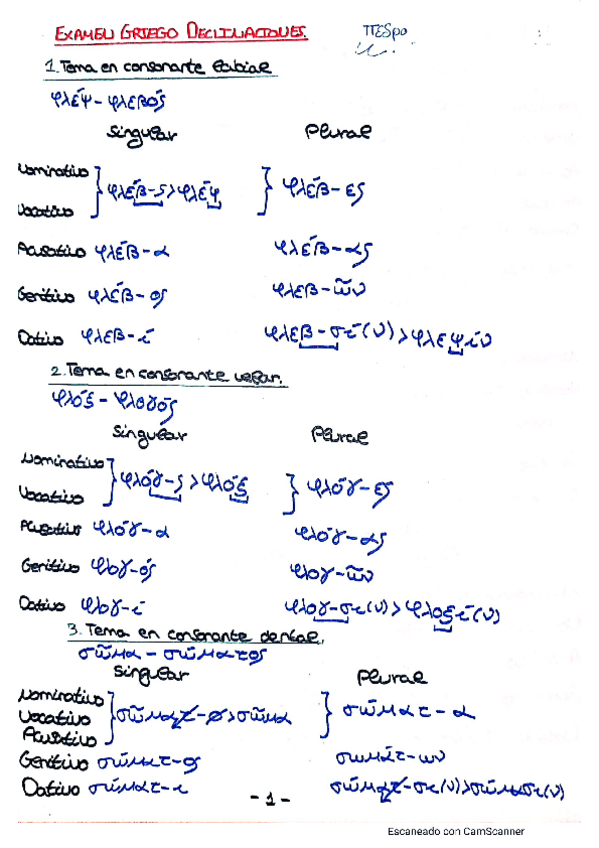 EXAMEN GRIEGO DECLINACIONES. ΠΕSpo
1. Tema en consonante labial
φλέψ - φλεβός
Singular Plural
Nominativo
Vocativo } φλέβ-ς > φλέψ } φλέβ-ες
Acusativo φλέβ-α φλέβ-ας
Genitivo φλέβ-ος φλεβ-ῶν
Dativo φλεβ-ί φλεβ-σί(ν) > φλεψίν
2. Tema en consonante velar.
φλόξ - φλογός
Singular Plural
Nominativo
Vocativo } φλόγ-ς > φλόξ } φλόγ-ες
Acusativo φλόγ-α φλόγ-ας
Genitivo φλογ-ός φλογ-ῶν
Dativo φλογ-ί φλογ-σι(ν) > φλοξί(ν)
3. Tema en consonante dental.
σῶμα - σῶματος
Singular Plural
Nominativo
Vocativo } σῶματ-∅ > σῶμα } σῶματ-α
Acusativo
Genitivo σώματ-ος σωμάτ-ων
Dativo σώματ-ι σώματ-σι(ν) > σώμασι(ν)
- 1 -
Escaneado con CamScanner